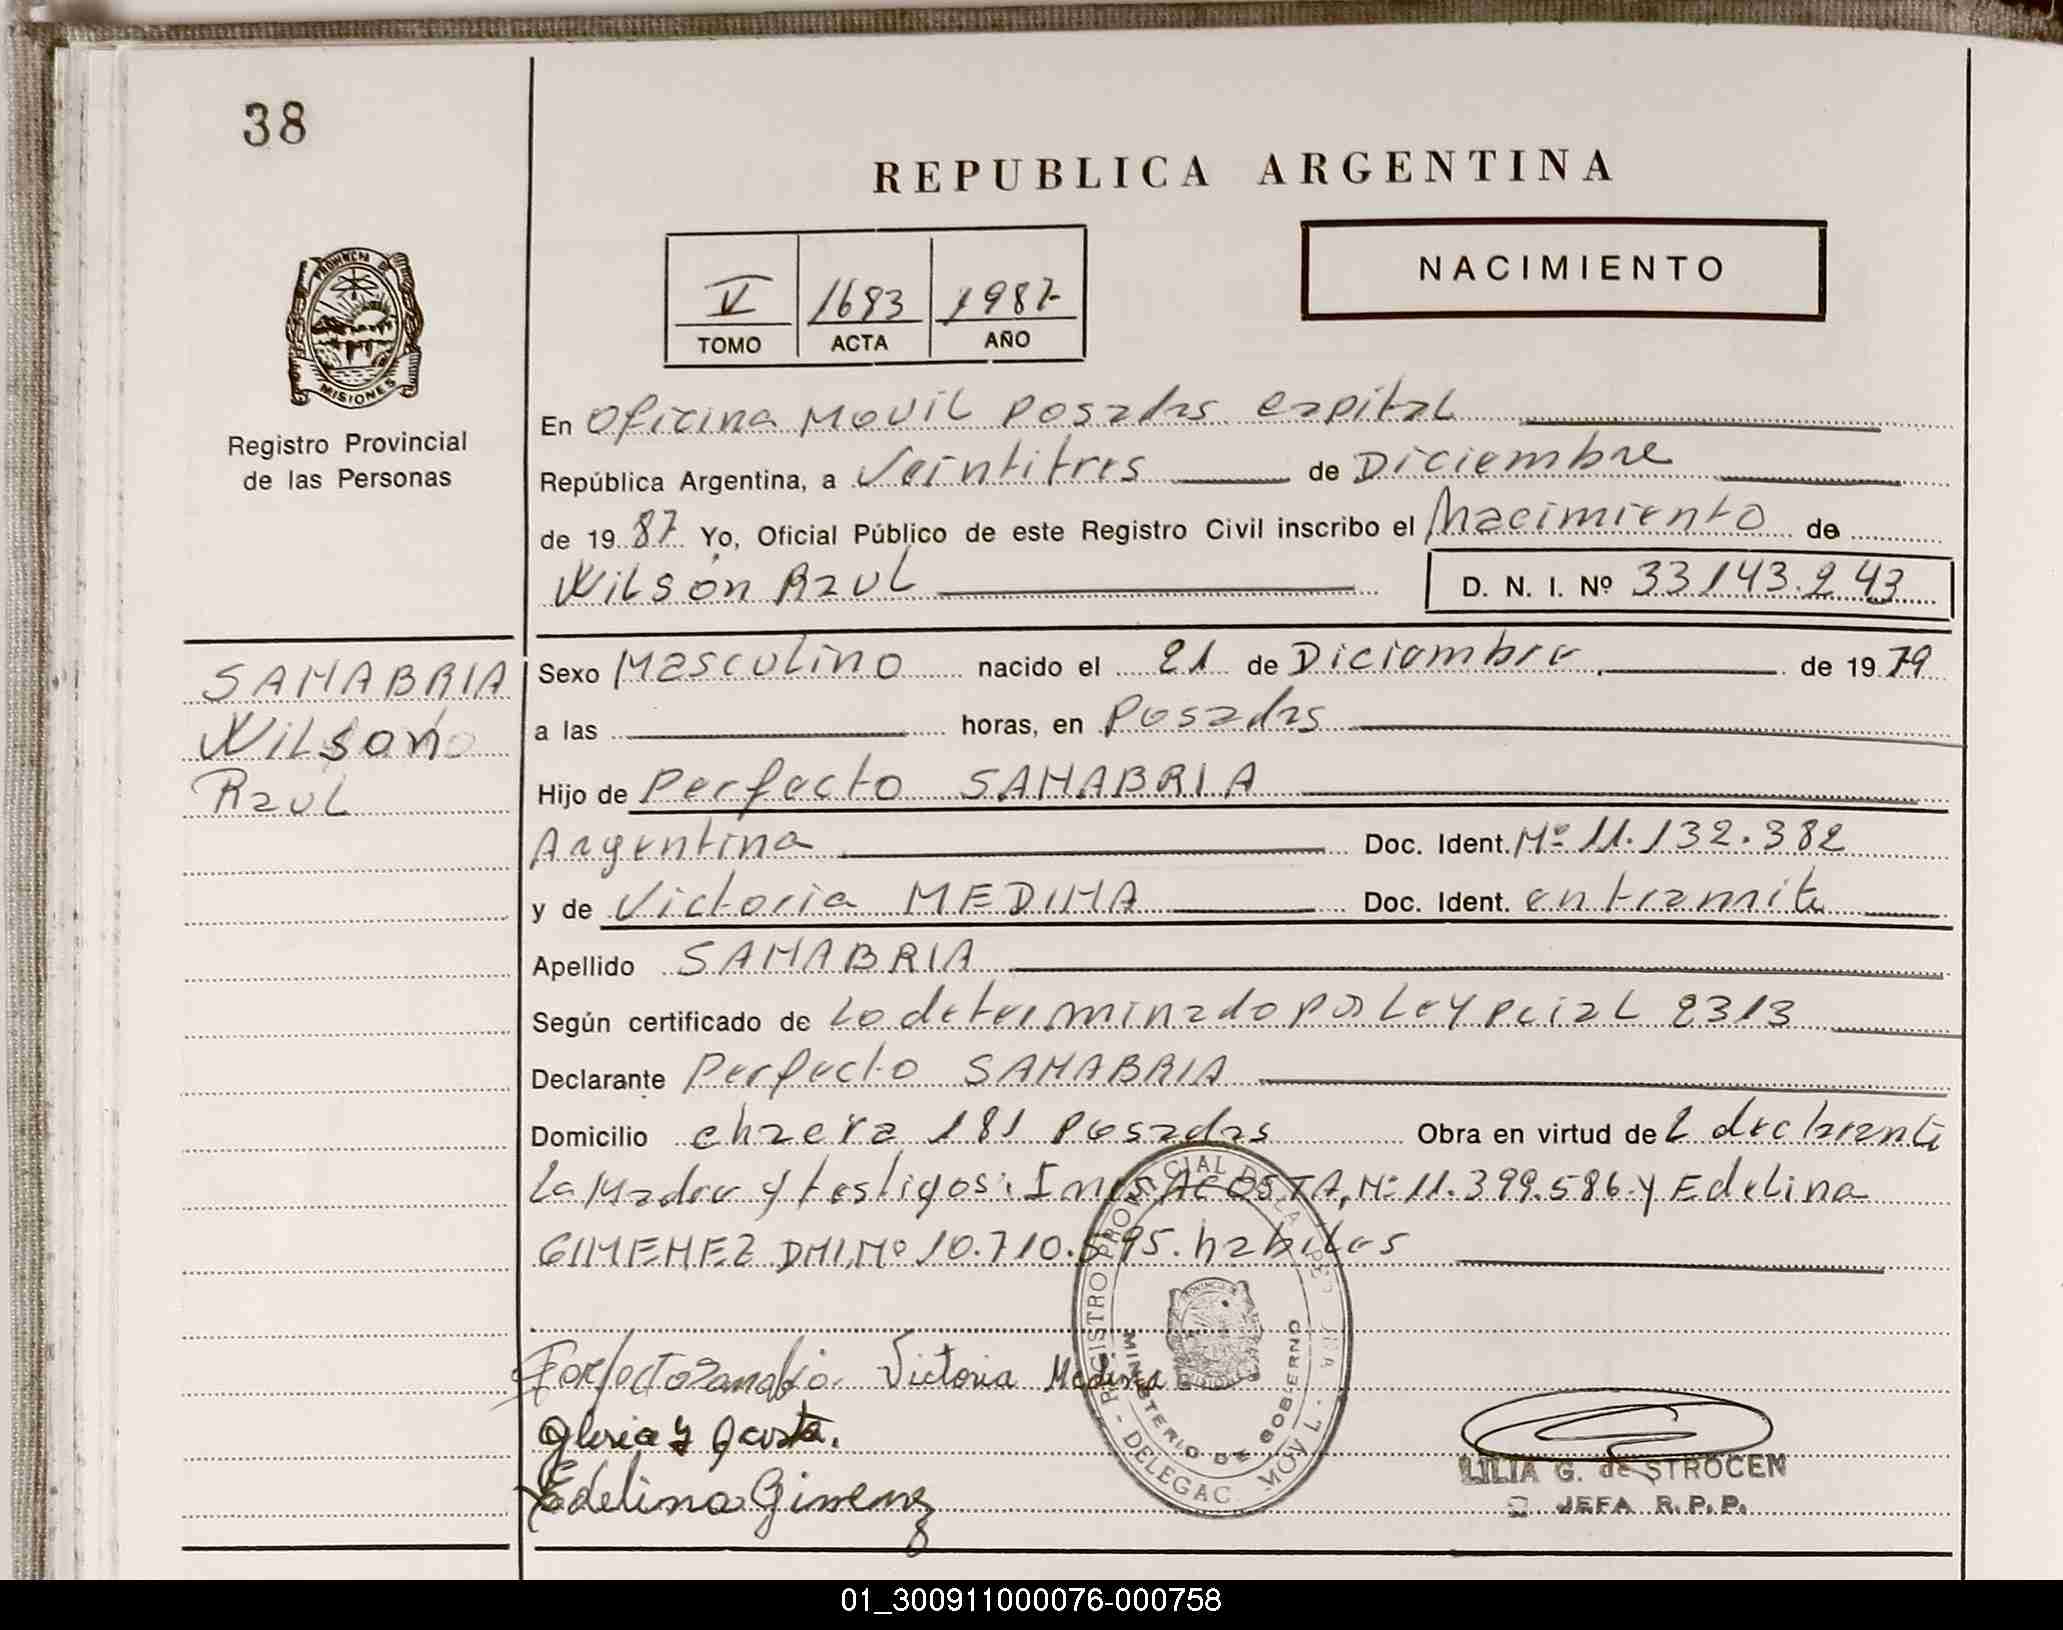 38
REPUBLICA ARGENTINA
NACIMIENTO
V 1683 1987
TOMO ACTA AÑO
PROVINCIA DE
MISIONES
Registro Provincial
de las Personas
En Oficina Movil Posadas capital
República Argentina, a Veintitres de Diciembre
de 1987 Yo, Oficial Público de este Registro Civil inscribo el Nacimiento de
Wilson Raul D. N. I. Nº 33143.243
SANABRIA
Wilson
Raul
Sexo Masculino nacido el 21 de Diciembre de 1979
a las horas, en Posadas
Hijo de Perfecto SANABRIA
Argentina Doc. Ident. Nº 11.132.382
y de Victoria MEDINA Doc. Ident. en tramite
Apellido SANABRIA
Según certificado de Lo determinado por Ley Pcial 2313
Declarante Perfecto SANABRIA
Domicilio chacra 181 Posadas Obra en virtud de L declarante
La Madre y testigos: Ines ACOSTA, Nº 11.399.586 y Edelina
GIMENEZ DNI.Nº 10.710.595. habiles
Victoria Medina
Gloria Y Acosta.
Edelina Gimenez
REGISTRO PROVINCIAL DE LAS PERSONAS - DELEGAC. MOVIL -
MINISTERIO DE GOBIERNO
LILIA G. de STROCEN
JEFA R.P.P.
01_300911000076-000758